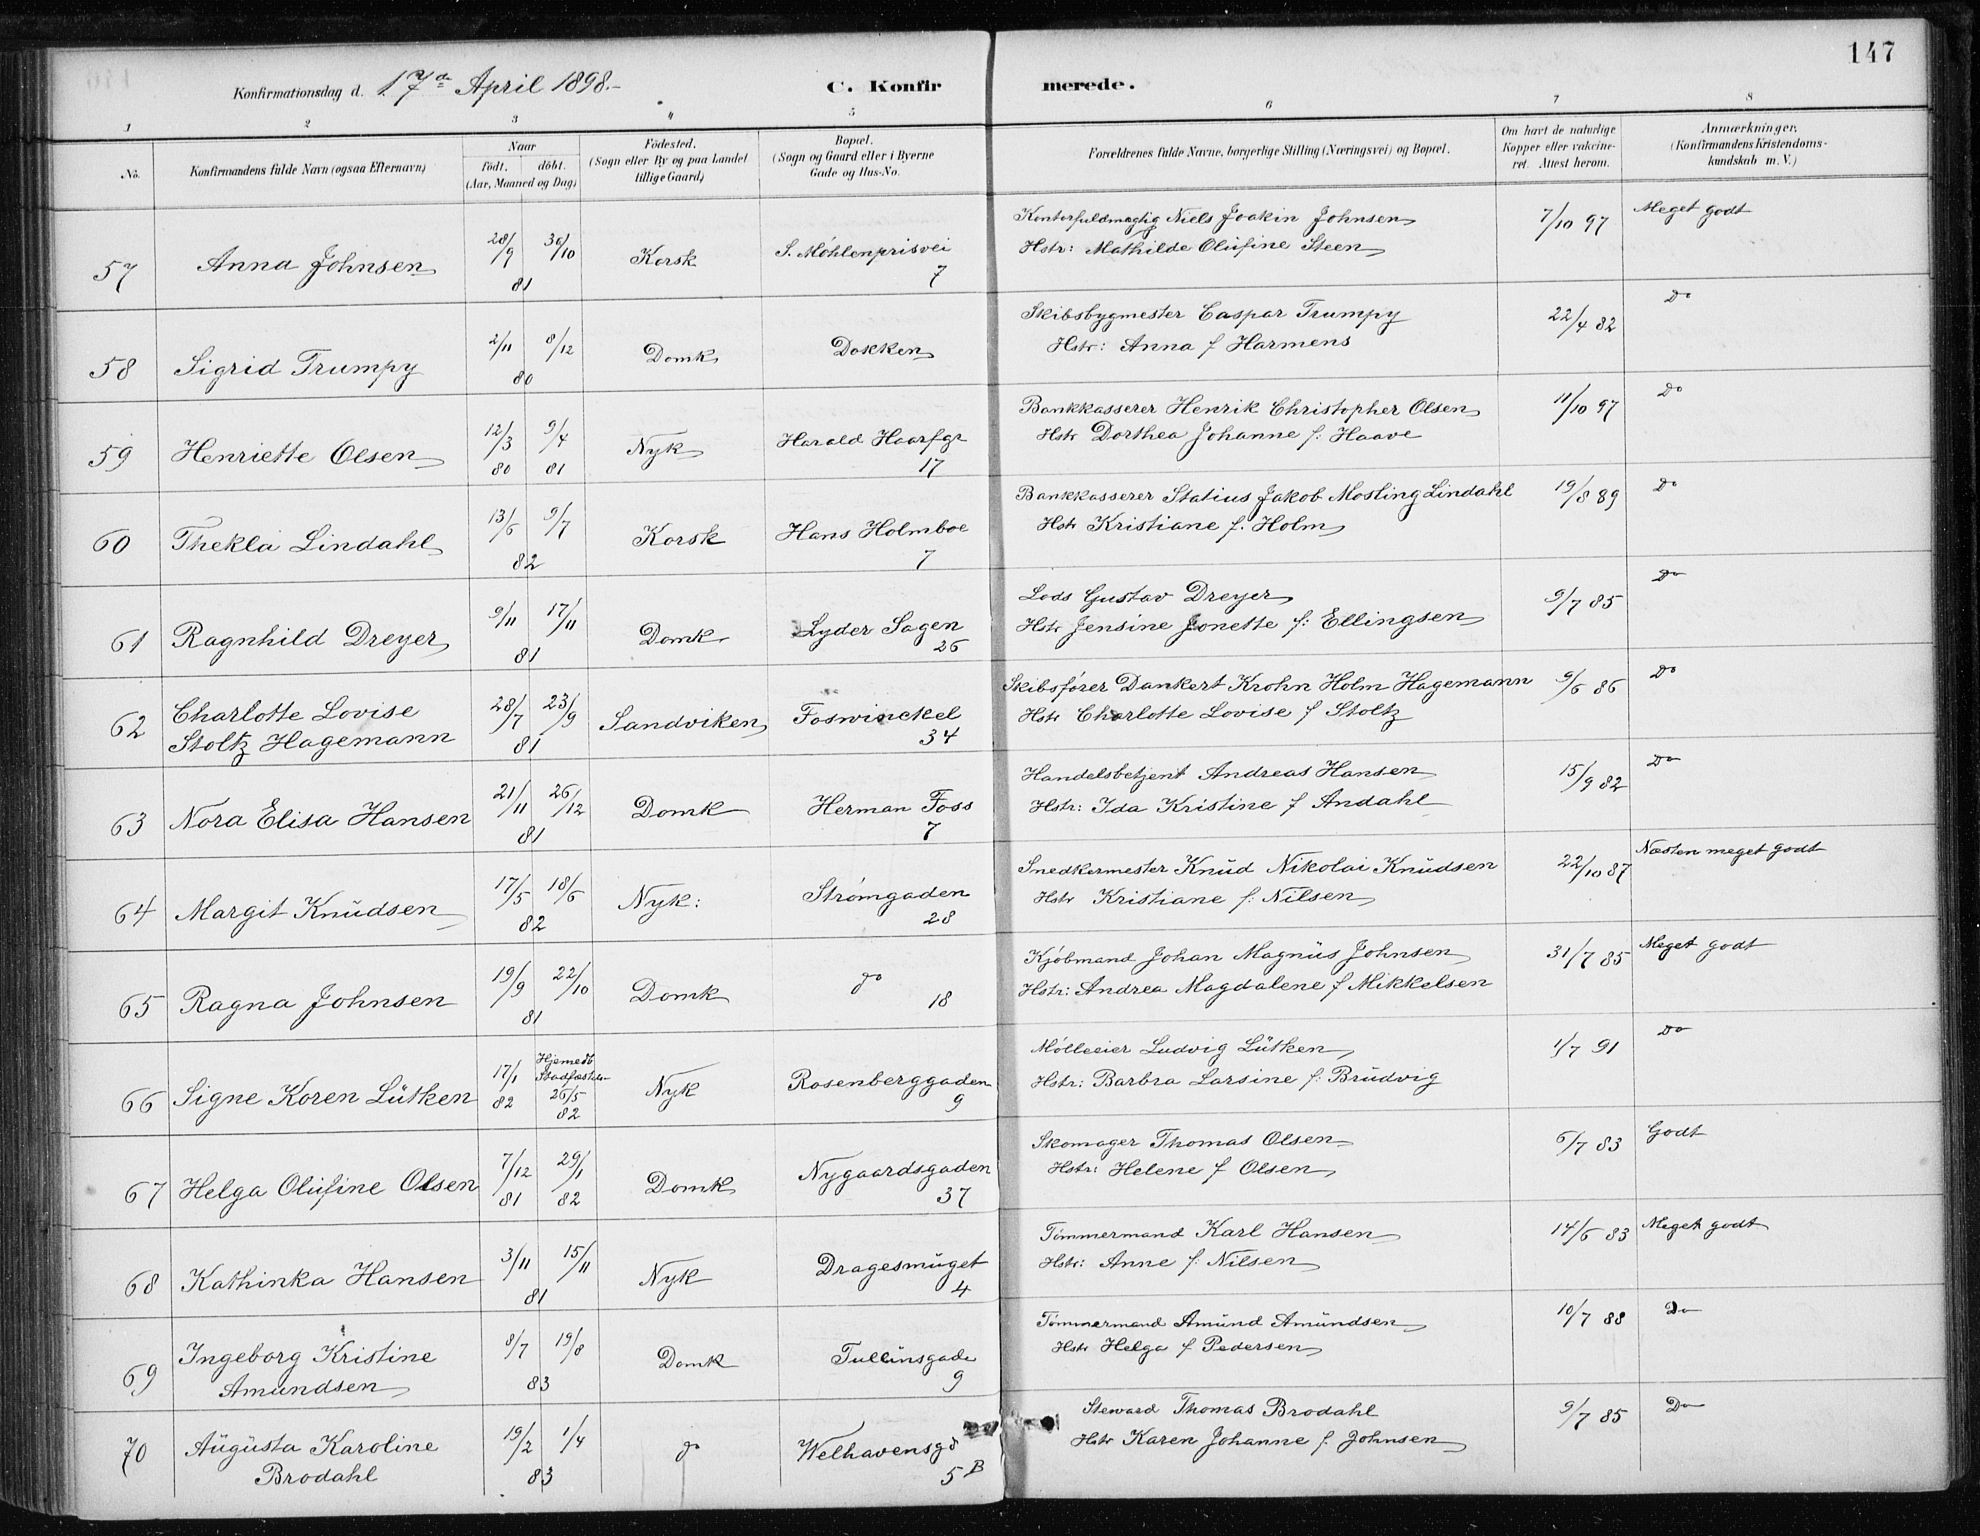 147
Konfirmationsdag d. 17de April 1898.-
C. Konfirmerede.
1 2 3 4 5 6 7 8
No. Konfirmandens fulde Navn (ogsaa Efternavn) Naar födt. döbt. (Aar, Maaned og Dag) Födested. (Sogn eller By og paa Landet tillige Gaard) Bopæl. (Sogn og Gaard eller i Byerne Gade og Hus-No. Forældrenes fulde Navne, borgerlige Stilling (Næringsvei) og Bopæl. Om havt de naturlige Kopper eller vakcineret. Attest herom. Anmærkninger. (Konfirmandens Kristendomskundskab m. V.)
57 Anna Johnsen 28/9 30/10 81 Korsk S. Møhlenprisvei 7 Kontorfuldmægtig Niels Joakin Johnsen 7/10 97 Meget godt
Hstr: Mathilde Olufine Steen
58 Sigrid Trumpy 2/11 8/12 80 Domk Dokken Skibsbygmester Caspar Trumpy 22/4 82 Do
Hstr: Anna f Harmens
59 Henriette Olsen 12/3 80 9/4 81 Nyk Harald Haarfgr 17 Bankkasserer Henrik Christopher Olsen 11/10 97 Do
Hstr Dorthea Johanne f: Haave
60 Thekla Lindahl 13/6 9/7 82 Korsk Hans Holmboe 7 Bankkasserer Statius Jakob Mosling Lindahl 19/8 89 Do
Hstr Kristiane f. Holm
61 Ragnhild Dreyer 9/11 17/11 81 Domk Lyder Sagen 26 Lods Gustav Dreyer 9/7 85 Do
Hstr Jensine Jonette f: Ellingsen
62 Charlotte Lovise 28/7 23/9 81 Sandviken Foswinckel 34 Skibsfører Dankert Krohn Holm Hagemann 9/6 86 Do
Stoltz Hagemann Hstr Charlotte Lovise f Stoltz
63 Nora Elisa Hansen 21/11 26/12 81 Domk Herman Foss 7 Handelsbetjent Andreas Hansen 15/9 82 Do
Hstr: Ida Kristine f Andahl
64 Margit Knudsen 17/5 18/6 82 Nyk: Strømgaden 28 Snedkermester Knud Nikolai Knudsen 22/10 87 Næsten meget godt
Hstr Kristiane f: Nilsen
65 Ragna Johnsen 19/9 22/10 81 Domk do 18 Kjøbmand Johan Magnus Johnsen 31/7 85 Meget godt
Hstr: Andrea Magdalene f Mikkelsen
66 Signe Koren Lütken 17/1 82 Hjemedb. 26/5 82 Nyk Rosenberggaden 9 Mølleeier Ludvig Lütken 1/7 91 Do
Hstr: Barbra Larsine f: Brudvig
67 Helga Olufine Olsen 7/12 81 29/1 82 Domk Nygaardsgaden 37 Skomager Thomas Olsen 6/7 83 Godt
Hstr: Helene f Olsen
68 Kathinka Hansen 3/11 15/11 81 Nyk Dragesmuget 4 Tømmermand Karl Hansen 14/6 83 Meget godt
Hstr: Anne f: Nilsen
69 Ingeborg Kristine 8/7 19/8 83 Domk Tullinsgade 9 Tømmermand Amund Amundsen 10/7 88 Do
Amundsen Hstr Helga f Pedersen
70 Augusta Karoline 19/2 1/4 83 do Welhavensgd 5 B Steward Thomas Brodahl 9/7 85 Do
Brodahl Hstr Karen Johanne f. Johnsen